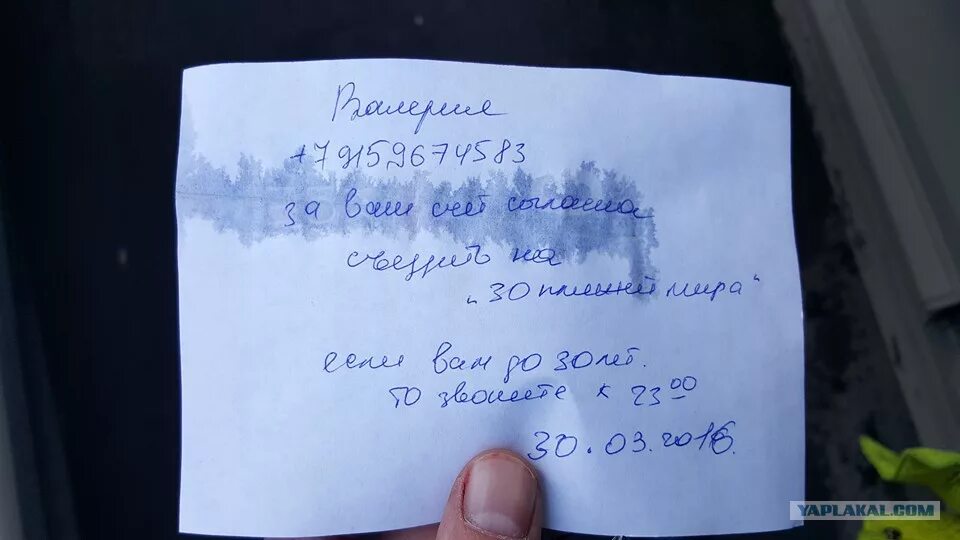 Валерия
+79159674583
за ваш счет согласна
съездить на
„30 пляжей мира“
если вам до 30 лет.
то звоните к 23 00
30.03.2016.
YAPLAKAL.COM